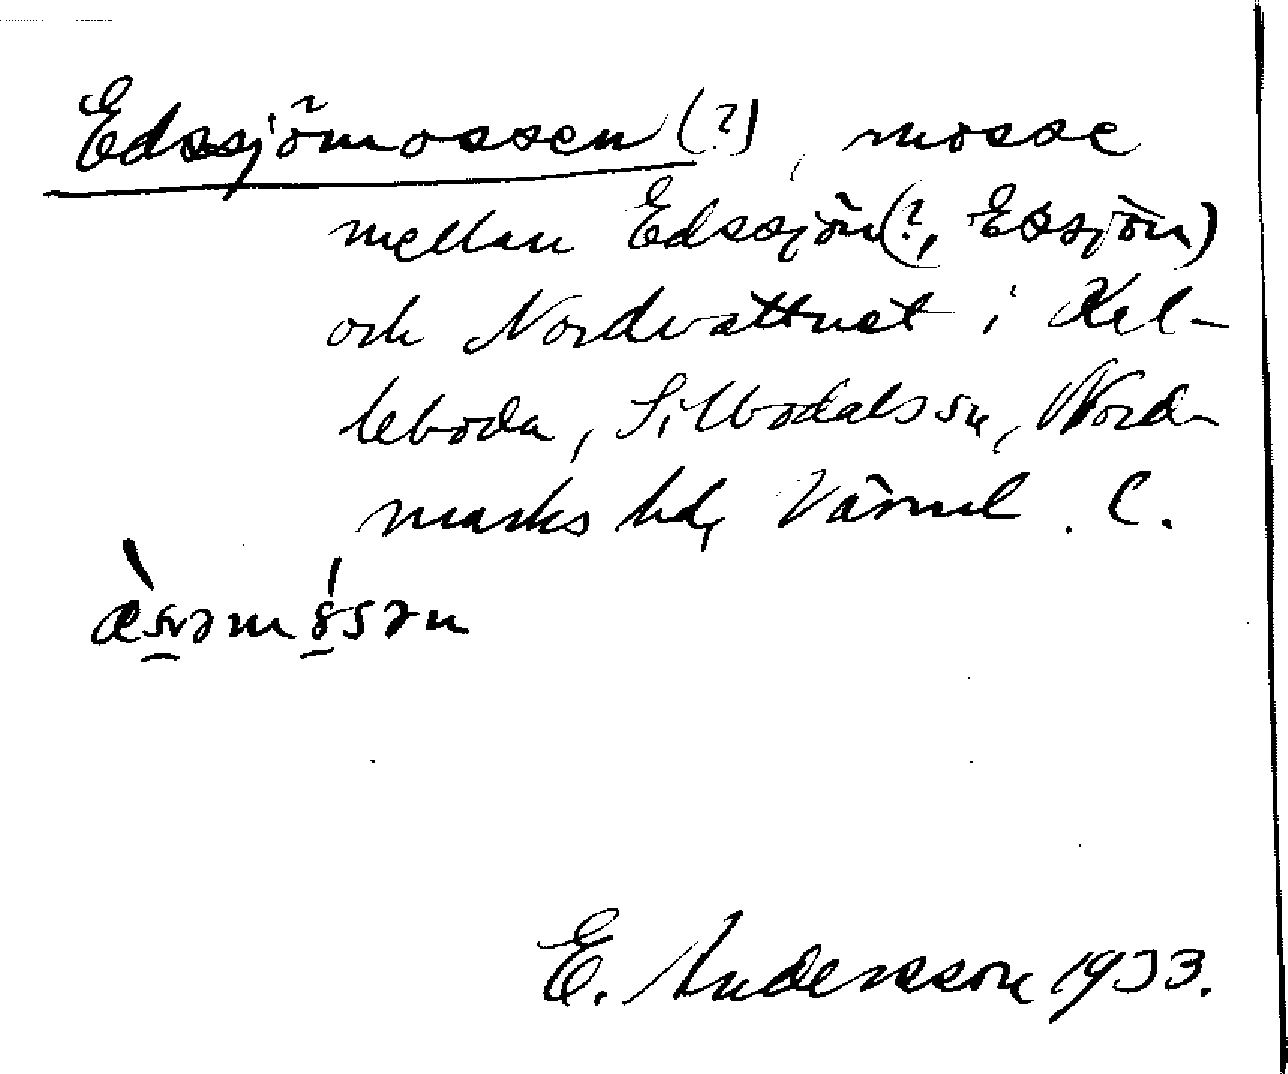 Edssjömossen (?), mosse
mellan Edssjön (?, Essjön)
och Nordvattnet i Kel-
leboda, Silbodals sn, Nord-
marks hd, Värml. C.
E. Andersson 1933.